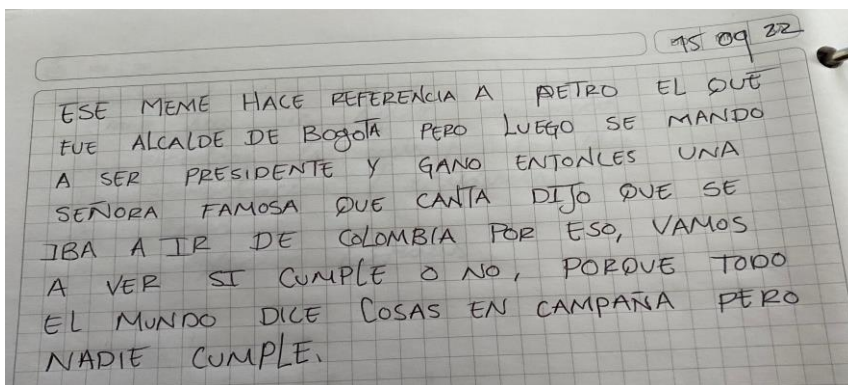 15 09 22
ESE MEME HACE REFERENCIA A PETRO EL QUE
FUE ALCALDE DE BOGOTA PERO LUEGO SE MANDO
A SER PRESIDENTE Y GANO ENTONCES UNA
SEÑORA FAMOSA QUE CANTA DIJO QUE SE
IBA A IR DE COLOMBIA POR ESO, VAMOS
A VER SI CUMPLE O NO, PORQUE TODO
EL MUNDO DICE COSAS EN CAMPAÑA PERO
NADIE CUMPLE.